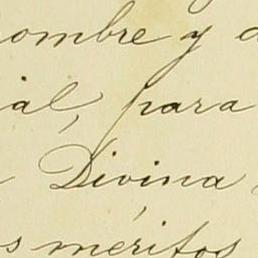 ombre y
ial, para
Divina
s meritos